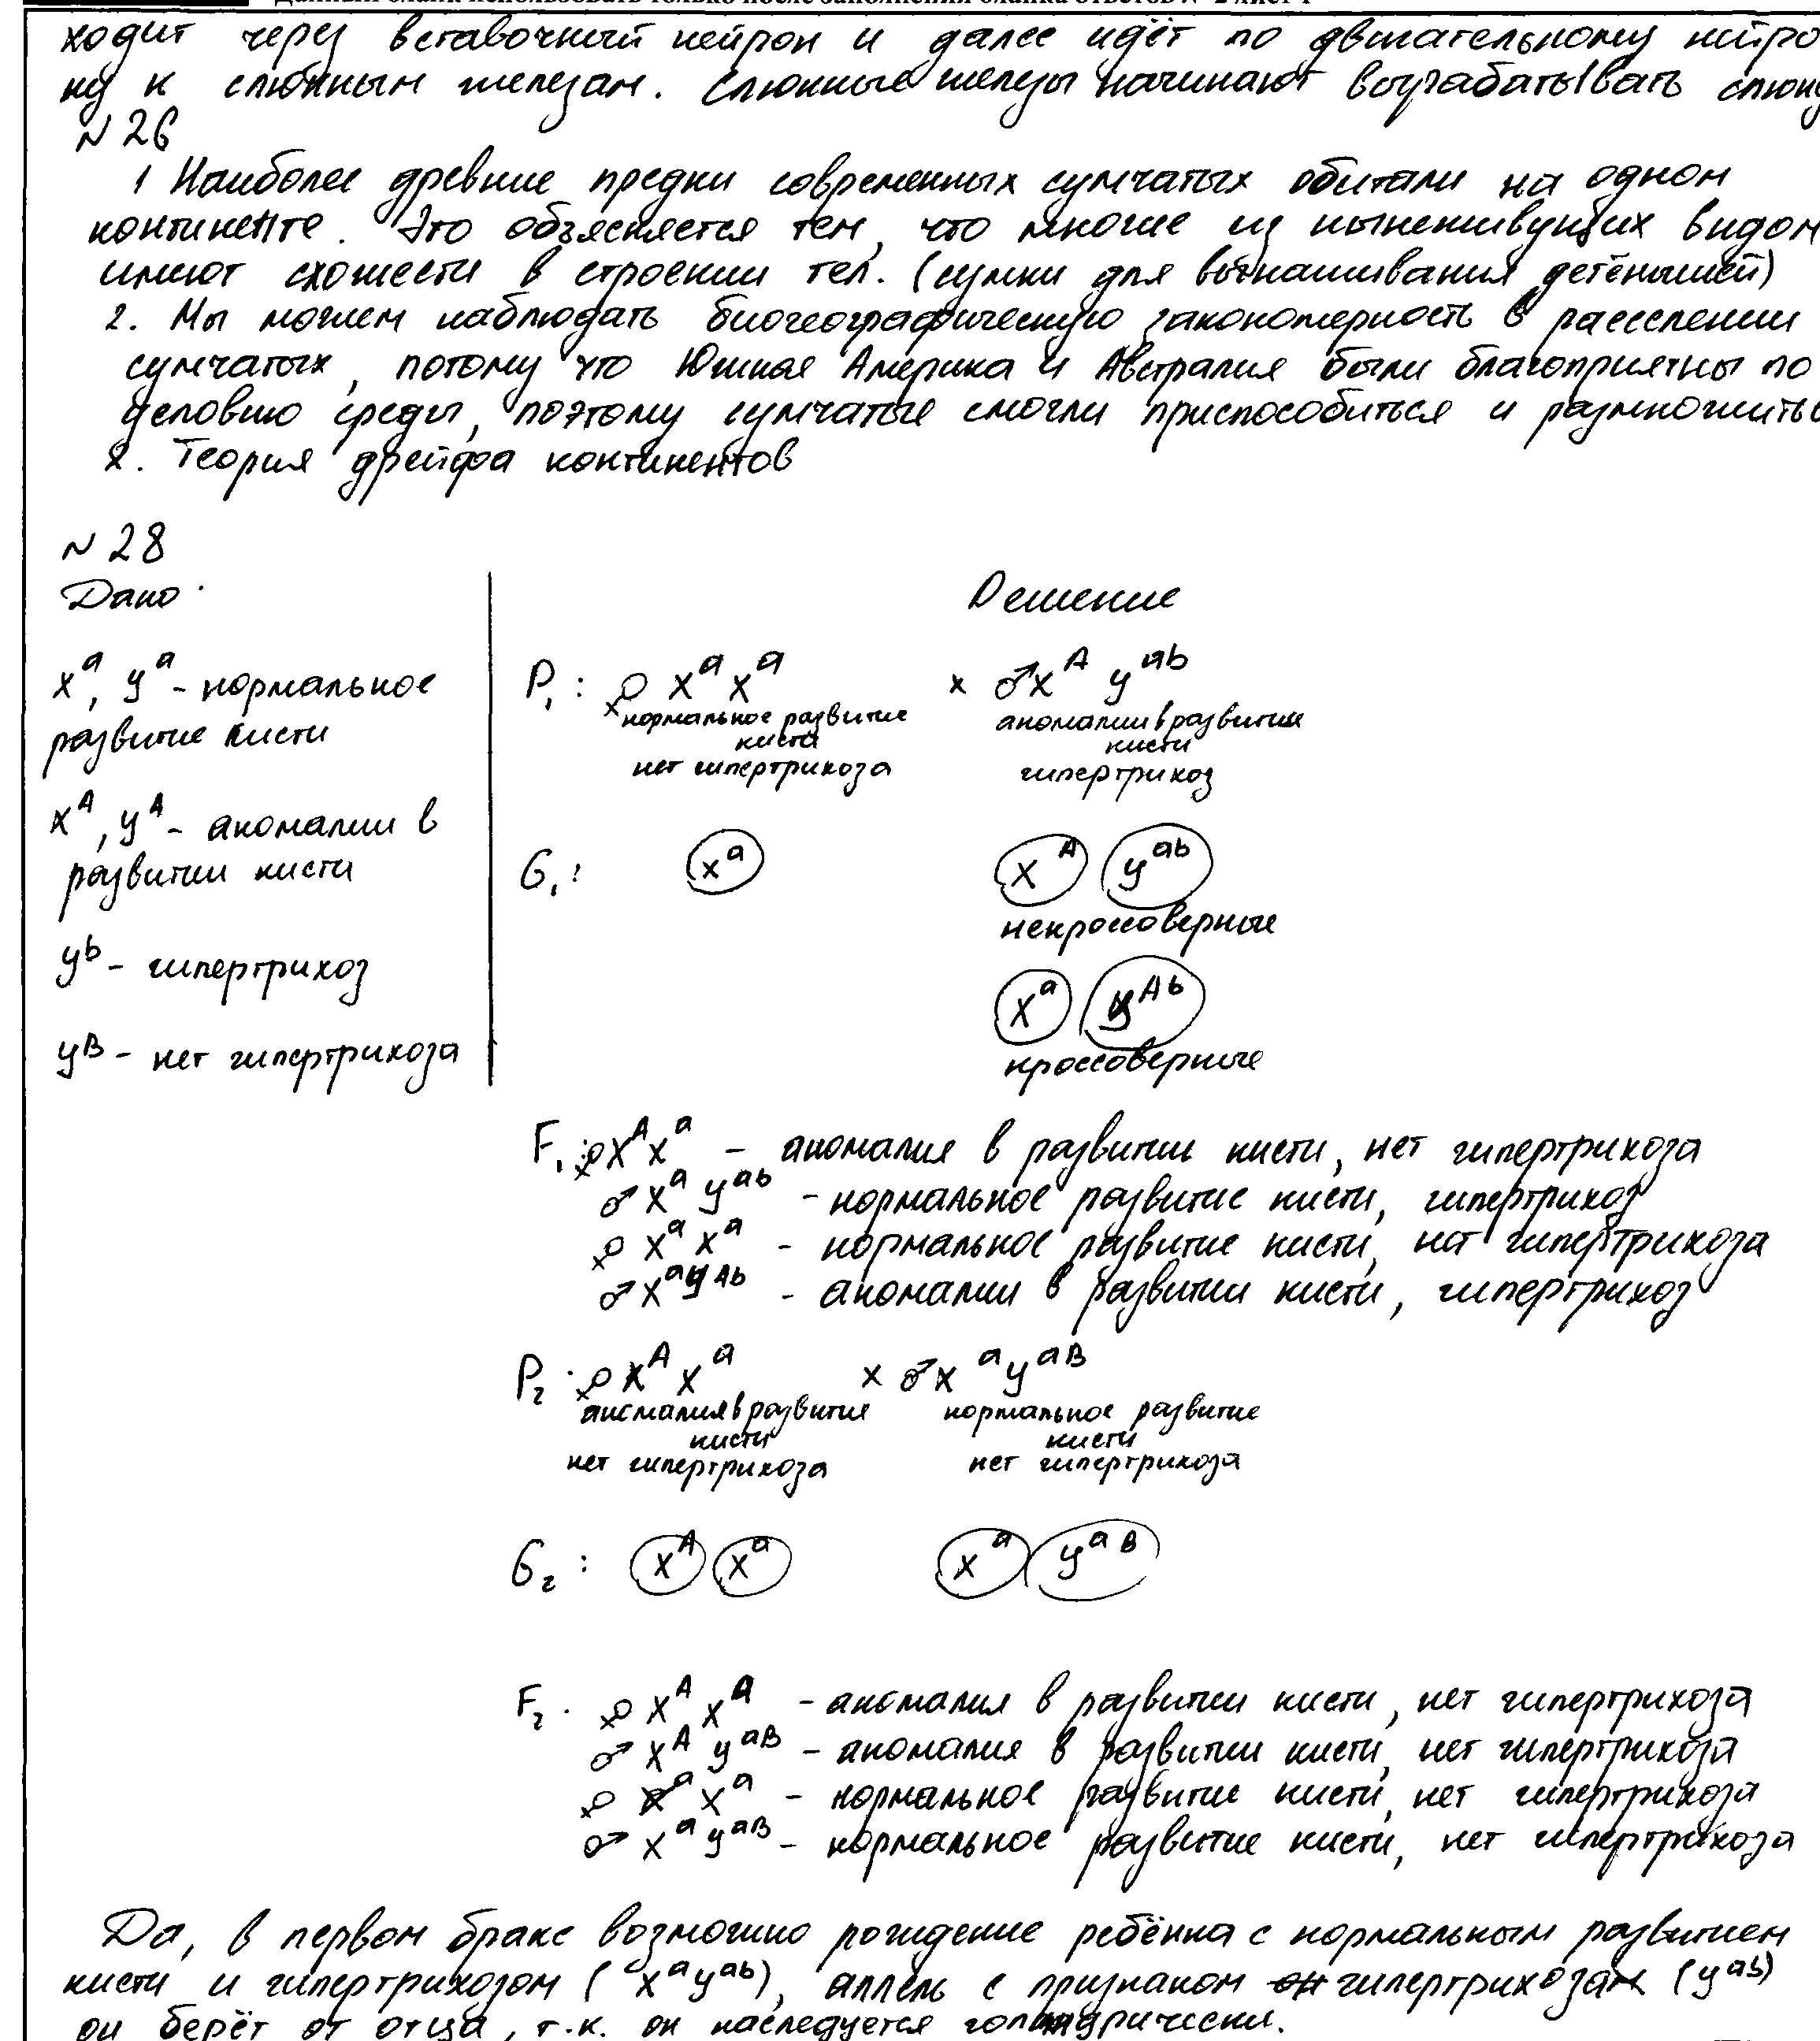 Данный бланк использовать только после заполнения бланка ответов № 2 лист 1
ходит через вставочный нейрон и далее идёт по двигательному нейро
ну к слюнным железам. Слюнные железы начинают вырабатывать слюну
N 26
1 Наиболее древние предки современных сумчатых обитали на одном
континенте. Это объясняется тем, что многие из нынеживущих видом
имеют схожести в строении тел. (сумки для вынашивания детёнышей)
2. Мы можем наблюдать биогеографическую закономерность в расселении
сумчатых, потому что Южная Америка и Австралия были благоприятны по
условию среды, поэтому сумчатые смогли приспособиться и размножиться
2. Теория дрейфа континентов
N 28
Дано
Решение
x^a, y^a - нормальное
развитие кисти
x^A, y^A - аномалии в
развитии кисти
y^b - гипертрихоз
y^B - нет гипертрихоза
P1: ♀ x^a x^a × ♂ x^A y^ab
нормальное развитие кисти нет гипертрихоза
аномалии в развитии кисти гипертрихоз
G1: x^a x^A y^ab
некроссоверные
x^a y^Ab
кроссоверные
F1: ♀ x^A x^a - аномалия в развитии кисти, нет гипертрихоза
♂ x^a y^ab - нормальное развитие кисти, гипертрихоз
♀ x^a x^a - нормальное развитие кисти, нет гипертрихоза
♂ x^a y^Ab - аномалии в развитии кисти, гипертрихоз
P2: ♀ x^A x^a × ♂ x^a y^aB
аномалия в развитие кисти нет гипертрихоза
нормальное развитие кисти нет гипертрихоза
G2: x^A x^a x^a y^aB
F2. ♀ x^A x^a - аномалия в развитии кисти, нет гипертрихоза
♂ x^A y^aB - аномалия в развитии кисти, нет гипертрихоза
♀ x^a x^a - нормальное развитие кисти, нет гипертрихоза
♂ x^a y^aB - нормальное развитие кисти, нет гипертрихоза
Да, в первом браке возможно рождение ребёнка с нормальным развитием
кисти и гипертрихозом (x^a y^ab), аллель с признаком гипертрихозам (y^ab)
он берёт от отца, т.к. он наследуется голандрически.